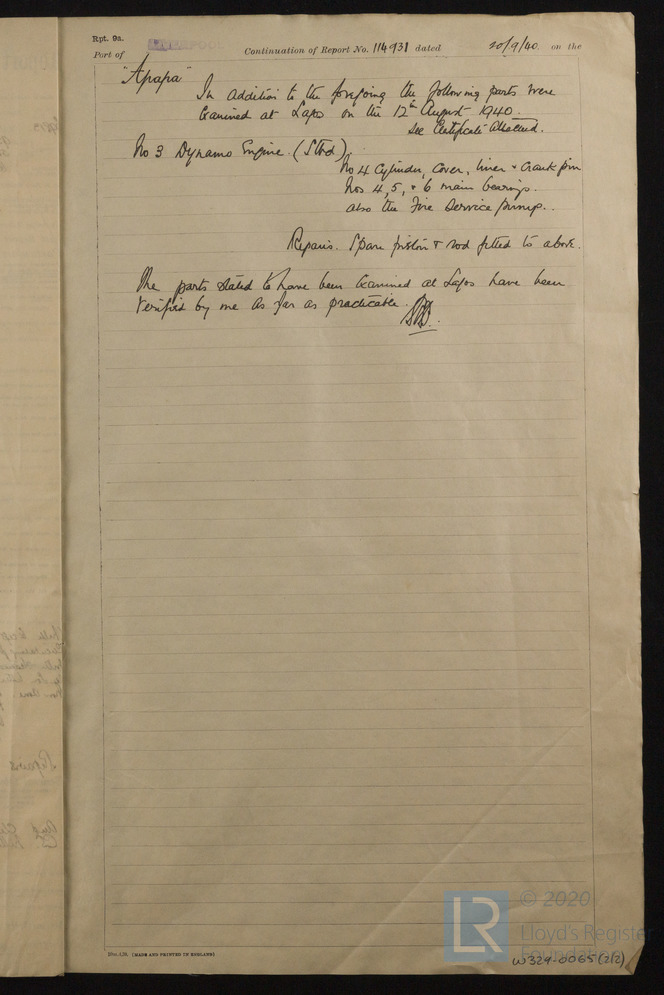 Rpt. 9a.
Port of LIVERPOOL Continuation of Report No. 114931 dated 20/9/40 on the
"Apapa"
In addition to the foregoing the following parts were
Examined at Lagos on the 12th August 1940.
See Certificate Attached.
No 3 Dynamo Engine. (Stbd).
No 4 Cylinder, Cover, liner & Crank pin
Nos 4, 5, & 6 main bearings.
also the Fire Service pump.
Repairs. Spare piston & rod fitted to above.
The parts stated to have been Examined at Lagos have been
Verified by me as far as practicable.
[MADE AND PRINTED IN ENGLAND]
© 2020
LR
Lloyd's Register
Foundation
W329-0065(2/2)